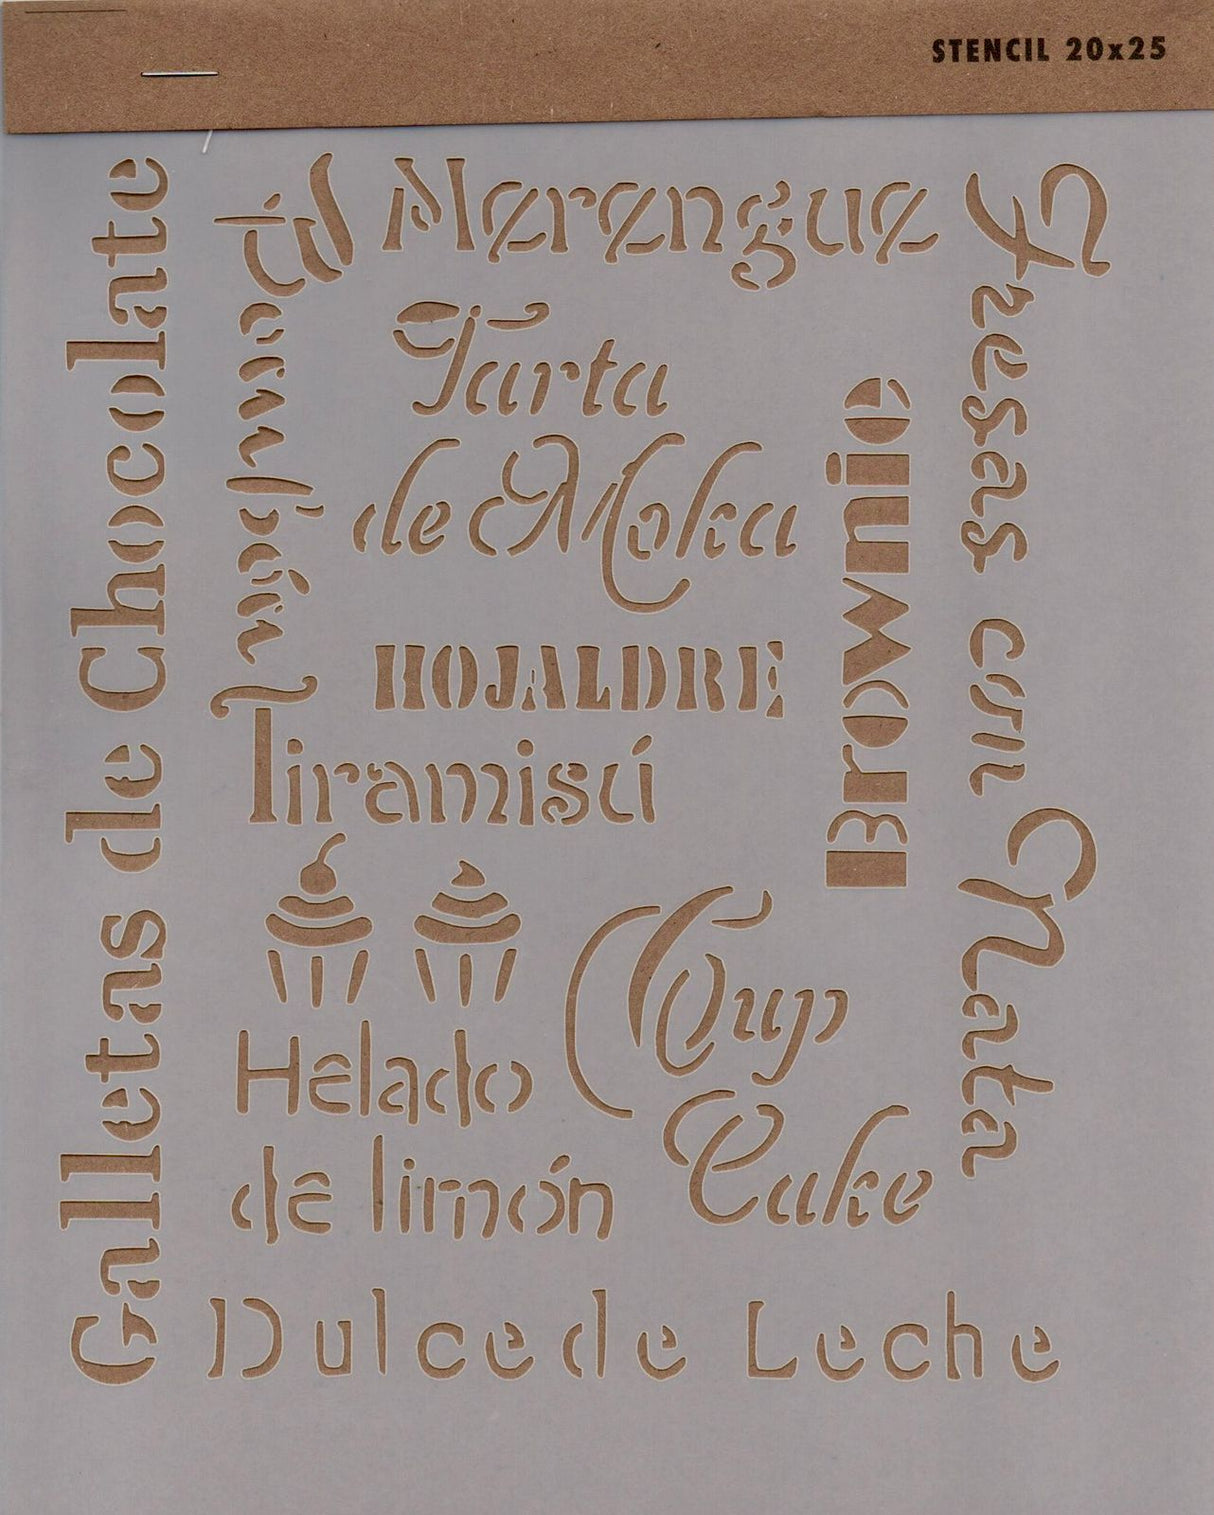 STENCIL 20x25
Galletas de Chocolate
Merengue
Fresas con Nata
Tarta
de Moka
Brownie
HOJALDRE
Tiramisú
Cup
Cake
Helado
de limón
Dulce de Leche